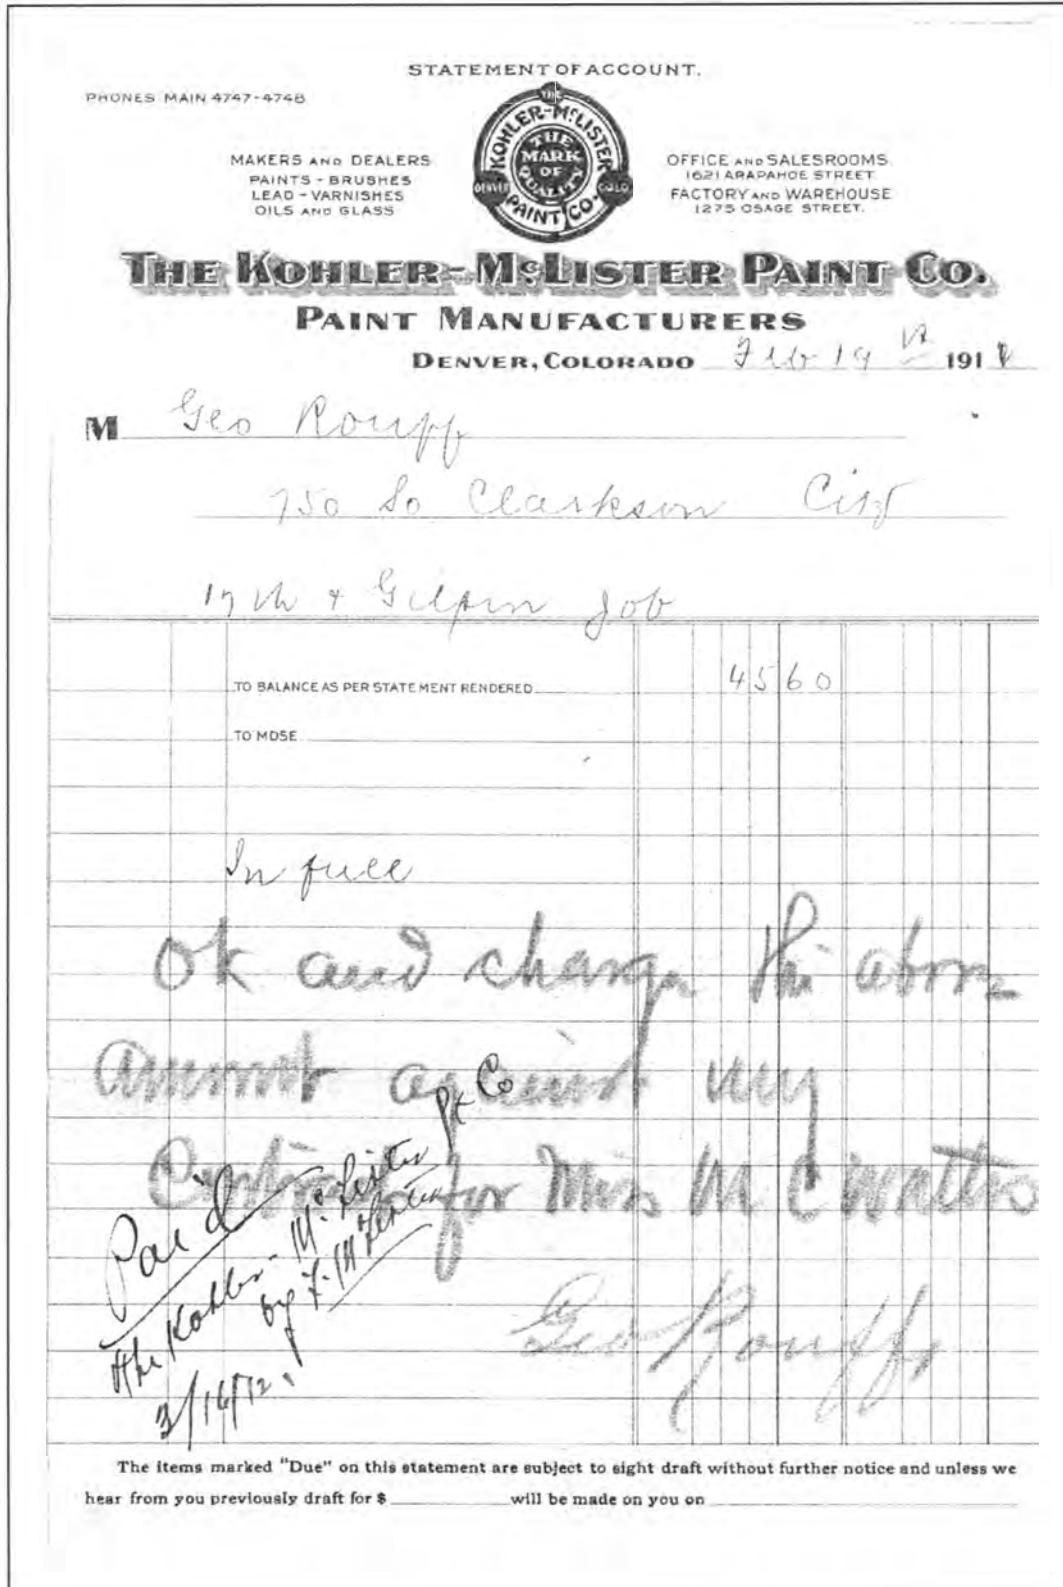 STATEMENT OF ACCOUNT.
PHONES MAIN 4747-4748
MAKERS AND DEALERS
PAINTS - BRUSHES
LEAD - VARNISHES
OILS AND GLASS
THE KOHLER-McLISTER PAINT CO.
DENVER COLO.
THE MARK OF QUALITY
OFFICE AND SALESROOMS
1621 ARAPAHOE STREET
FACTORY AND WAREHOUSE
1275 OSAGE STREET.
THE KOHLER-McLISTER PAINT CO.
PAINT MANUFACTURERS
DENVER, COLORADO Feb 19 191
M Geo Rouff
750 So Clarkson City
17th + Gilpin Job
TO BALANCE AS PER STATEMENT RENDERED 45 60
TO MDSE
In full
Ok and charge this above
amount against my
Contract for Miss M C Watts
Geo Rouff
Paid
The Kohler-McLister Pt Co
by F. McLister
3/16/12.
The items marked "Due" on this statement are subject to sight draft without further notice and unless we
hear from you previously draft for $ will be made on you on